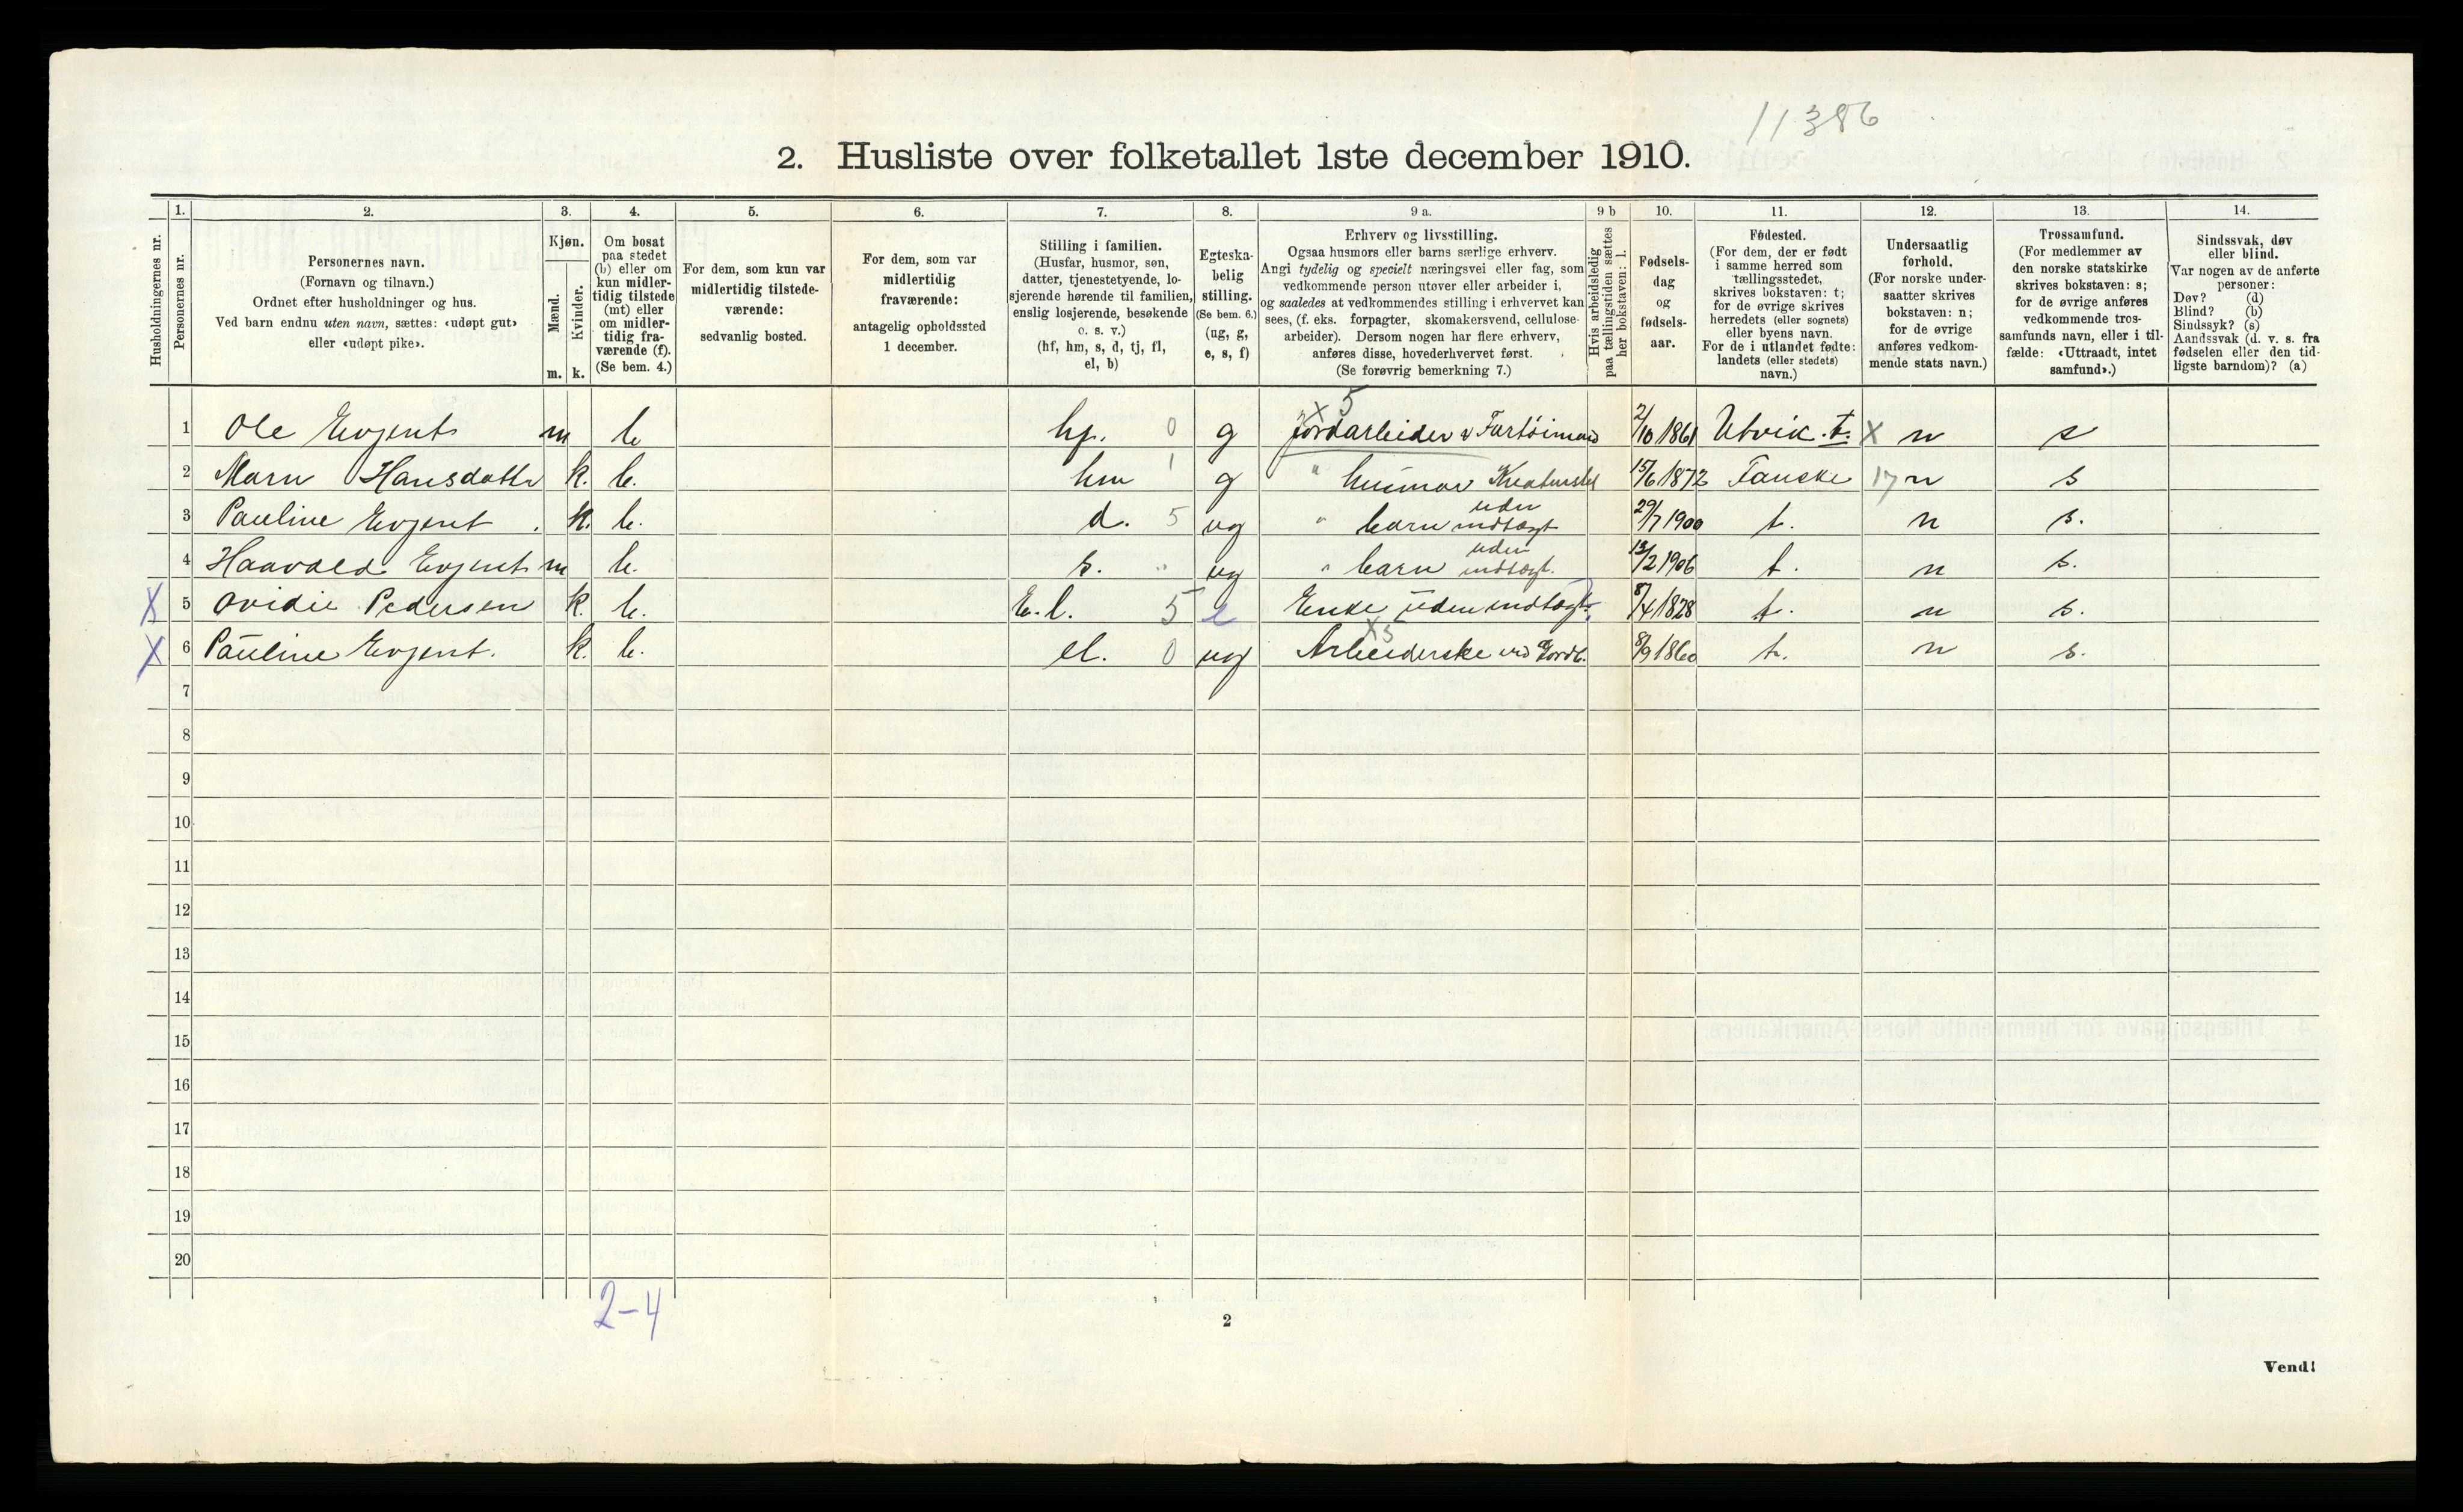 11386
2. Husliste over folketallet 1ste december 1910.
Husholdningernes nr.
1.
Personernes nr.
2.
Personernes navn.
(Fornavn og tilnavn.)
Ordnet efter husholdninger og hus.
Ved barn endnu uten navn, sættes: «udøpt gut»
eller «udøpt pike».
3.
Kjøn.
Mænd.
Kvinder.
m. k.
4.
Om bosat
paa stedet
(b) eller om
kun midler-
tidig tilstede
(mt) eller
om midler-
tidig fra-
værende (f).
(Se bem. 4.)
5.
For dem, som kun var
midlertidig tilstede-
værende:
sedvanlig bosted.
6.
For dem, som var
midlertidig
fraværende:
antagelig opholdssted
1 december.
7.
Stilling i familien.
(Husfar, husmor, søn,
datter, tjenestetyende, lo-
sjerende hørende til familien,
enslig losjerende, besøkende
o. s. v.)
(hf, hm, s, d, tj, fl,
el, b)
8.
Egteska-
belig
stilling.
(Se bem. 6.)
(ug, g,
e, s, f)
9 a.
Erhverv og livsstilling.
Ogsaa husmors eller barns særlige erhverv.
Angi tydelig og specielt næringsvei eller fag, som
vedkommende person utøver eller arbeider i,
og saaledes at vedkommendes stilling i erhvervet kan
sees, (f. eks. forpagter, skomakersvend, cellulose-
arbeider). Dersom nogen har flere erhverv,
anføres disse, hovederhvervet først.
(Se forøvrig bemerkning 7.)
9 b
Hvis arbeidsledig
paa tællingstiden sættes
her bokstaven: l.
10.
Fødsels-
dag
og
fødsels-
aar.
11.
Fødested.
(For dem, der er født
i samme herred som
tællingsstedet,
skrives bokstaven: t;
for de øvrige skrives
herredets (eller sognets)
eller byens navn.
For de i utlandet fødte:
landets (eller stedets)
navn.)
12.
Undersaatlig
forhold.
(For norske under-
saatter skrives
bokstaven: n;
for de øvrige
anføres vedkom-
mende stats navn.)
13.
Trossamfund.
(For medlemmer av
den norske statskirke
skrives bokstaven: s;
for de øvrige anføres
vedkommende tros-
samfunds navn, eller i til-
fælde: «Uttraadt, intet
samfund».)
14.
Sindssvak, døv
eller blind.
Var nogen av de anførte
personer:
Døv? (d)
Blind? (b)
Sindssyk? (s)
Aandssvak (d. v. s. fra
fødselen eller den tid-
ligste barndom)? (a)
x 5
1 Ole Evjent m b hf. 0 g Jordarbeider Fartöimand 2/10 1861 Utvik. t. X n s
2 Hansdatter k. b. hm 1 g " husmor 15/6 1872 Fauske 17 n s
3 Pauline Evjent k. b. d. 5 ug " barn uden indtægt 29/7 1900 t. n s.
4 Haavald Evjent m b. s. " ug " barn uden indtægt. 13/2 1906 t. n s.
X 5 Ovidie Pedersen k. b. E. l. 5 e Enke uden indtægt. 8/4 1828 t. n s.
X 6 Pauline Evjent. k. b. el. 0 ug x5 Arbeiderske ved Jordb. 8/9 1860 t. n s.
7
8
9
10
11
12
13
14
15
16
17
18
19
20
2-4
2
Vend!